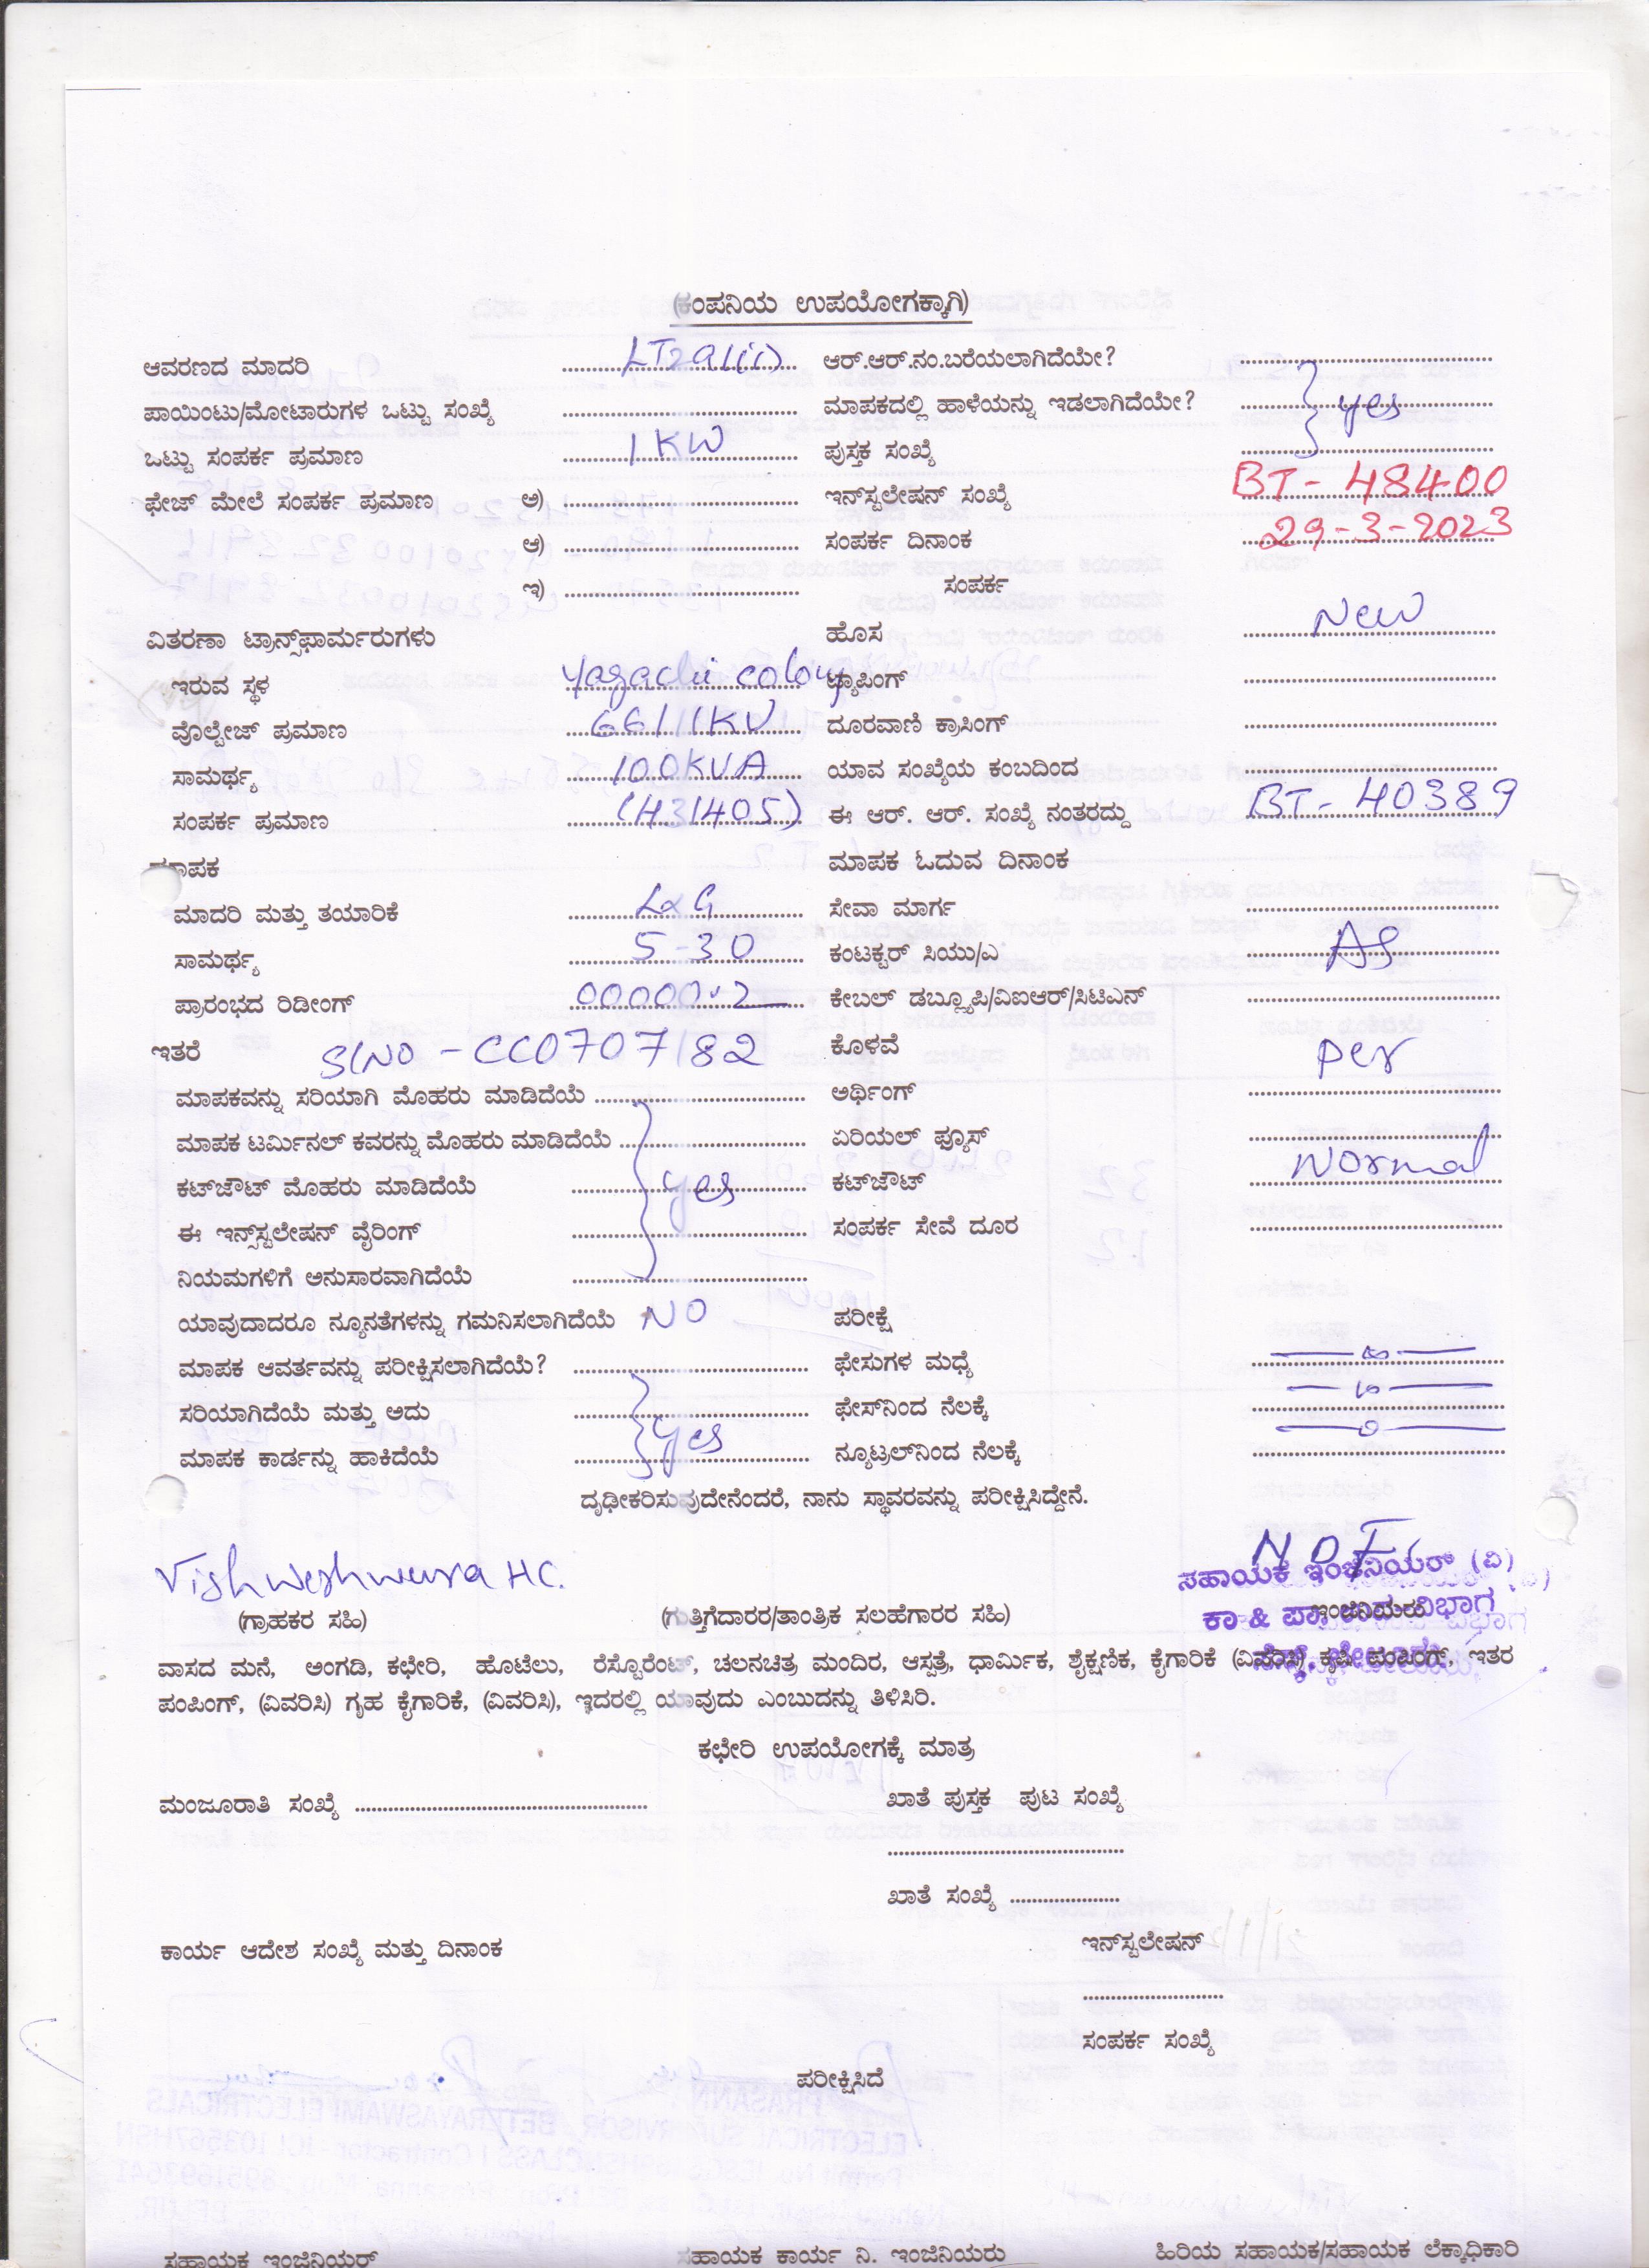 (ಕಂಪನಿಯ ಉಪಯೋಗಕ್ಕಾಗಿ)
ಆವರಣದ ಮಾದರಿ LT2a(ii) ಆರ್.ಆರ್.ನಂ.ಬರೆಯಲಾಗಿದೆಯೇ?
ಪಾಯಿಂಟು/ಮೋಟಾರುಗಳ ಒಟ್ಟು ಸಂಖ್ಯೆ ಮಾಪಕದಲ್ಲಿ ಹಾಳೆಯನ್ನು ಇಡಲಾಗಿದೆಯೇ? yes
ಒಟ್ಟು ಸಂಪರ್ಕ ಪ್ರಮಾಣ 1 KW ಪುಸ್ತಕ ಸಂಖ್ಯೆ
ಫೇಜ್ ಮೇಲೆ ಸಂಪರ್ಕ ಪ್ರಮಾಣ ಅ) ಇನ್‌ಸ್ಟಲೇಷನ್ ಸಂಖ್ಯೆ BT - 48400
ಆ) ಸಂಪರ್ಕ ದಿನಾಂಕ 29-3-2023
ಇ) ಸಂಪರ್ಕ
ವಿತರಣಾ ಟ್ರಾನ್ಸ್‌ಫಾರ್ಮರುಗಳು ಹೊಸ New
ಇರುವ ಸ್ಥಳ Yagachi colony ಟ್ಯಾಪಿಂಗ್
ವೊಲ್ಟೇಜ್ ಪ್ರಮಾಣ 66/11KV ದೂರವಾಣಿ ಕ್ರಾಸಿಂಗ್
ಸಾಮರ್ಥ್ಯ 100KVA ಯಾವ ಸಂಖ್ಯೆಯ ಕಂಬದಿಂದ
ಸಂಪರ್ಕ ಪ್ರಮಾಣ (H31405) ಈ ಆರ್. ಆರ್. ಸಂಖ್ಯೆ ನಂತರದ್ದು BT- 40389
ಮಾಪಕ ಮಾಪಕ ಓದುವ ದಿನಾಂಕ
ಮಾದರಿ ಮತ್ತು ತಯಾರಿಕೆ L&G ಸೇವಾ ಮಾರ್ಗ
ಸಾಮರ್ಥ್ಯ 5-30 ಕಂಟಕ್ಟರ್ ಸಿಯು/ಎ
ಪ್ರಾರಂಭದ ರಿಡೀಂಗ್ 00000.2 ಕೇಬಲ್ ಡಬ್ಲ್ಯೂಪಿ/ವಿಐಆರ್/ಸಿಟಿಎನ್
ಇತರೆ SlNO - CC0707182 ಕೊಳವೆ per
ಮಾಪಕವನ್ನು ಸರಿಯಾಗಿ ಮೊಹರು ಮಾಡಿದೆಯೆ ಅರ್ಥಿಂಗ್
ಮಾಪಕ ಟರ್ಮಿನಲ್ ಕವರನ್ನು ಮೊಹರು ಮಾಡಿದೆಯೆ ಏರಿಯಲ್ ಫ್ಯೂಸ್
ಕಟ್‌ಜೌಟ್ ಮೊಹರು ಮಾಡಿದೆಯೆ yes ಕಟ್‌ಜೌಟ್ Normal
ಈ ಇನ್ಸ್‌ಸ್ಟಲೇಷನ್ ವೈರಿಂಗ್ ಸಂಪರ್ಕ ಸೇವೆ ದೂರ
ನಿಯಮಗಳಿಗೆ ಅನುಸಾರವಾಗಿದೆಯೆ
ಯಾವುದಾದರೂ ನ್ಯೂನತೆಗಳನ್ನು ಗಮನಿಸಲಾಗಿದೆಯೆ NO ಪರೀಕ್ಷೆ
ಮಾಪಕ ಆವರ್ತವನ್ನು ಪರೀಕ್ಷಿಸಲಾಗಿದೆಯೆ? ಫೇಸುಗಳ ಮಧ್ಯೆ
ಸರಿಯಾಗಿದೆಯೆ ಮತ್ತು ಅದು ಫೇಸ್‌ನಿಂದ ನೆಲಕ್ಕೆ
ಮಾಪಕ ಕಾರ್ಡನ್ನು ಹಾಕಿದೆಯೆ yes ನ್ಯೂಟ್ರಲ್‌ನಿಂದ ನೆಲಕ್ಕೆ
ದೃಢೀಕರಿಸುವುದೇನೆಂದರೆ, ನಾನು ಸ್ಥಾವರವನ್ನು ಪರೀಕ್ಷಿಸಿದ್ದೇನೆ.
Vishweshweura HC.
ಸಹಾಯಕ ಇಂಜಿನಿಯರ್ (ವಿ)
(ಗ್ರಾಹಕರ ಸಹಿ) (ಗುತ್ತಿಗೆದಾರರ/ತಾಂತ್ರಿಕ ಸಲಹೆಗಾರರ ಸಹಿ) ಇಂಜಿನಿಯರು
ವಾಸದ ಮನೆ, ಅಂಗಡಿ, ಕಛೇರಿ, ಹೊಟೆಲು, ರೆಸ್ಟೋರೆಂಟ್, ಚಲನಚಿತ್ರ ಮಂದಿರ, ಆಸ್ಪತ್ರೆ, ಧಾರ್ಮಿಕ, ಶೈಕ್ಷಣಿಕ, ಕೈಗಾರಿಕೆ (ವಿವರಿಸಿ) ಕೃಷಿ ಪಂಪಿಂಗ್, ಇತರ
ಪಂಪಿಂಗ್, (ವಿವರಿಸಿ) ಗೃಹ ಕೈಗಾರಿಕೆ, (ವಿವರಿಸಿ), ಇದರಲ್ಲಿ ಯಾವುದು ಎಂಬುದನ್ನು ತಿಳಿಸಿರಿ.
ಕಛೇರಿ ಉಪಯೋಗಕ್ಕೆ ಮಾತ್ರ
ಮಂಜೂರಾತಿ ಸಂಖ್ಯೆ ಖಾತೆ ಪುಸ್ತಕ ಪುಟ ಸಂಖ್ಯೆ
ಖಾತೆ ಸಂಖ್ಯೆ
ಕಾರ್ಯ ಆದೇಶ ಸಂಖ್ಯೆ ಮತ್ತು ದಿನಾಂಕ ಇನ್‌ಸ್ಟಲೇಷನ್
ಸಂಪರ್ಕ ಸಂಖ್ಯೆ
ಪರೀಕ್ಷಿಸಿದೆ
ಸಹಾಯಕ ಇಂಜಿನಿಯರ್ ಸಹಾಯಕ ಕಾರ್ಯ ನಿ. ಇಂಜಿನಿಯರು ಹಿರಿಯ ಸಹಾಯಕ/ಸಹಾಯಕ ಲೆಕ್ಕಾಧಿಕಾರಿ